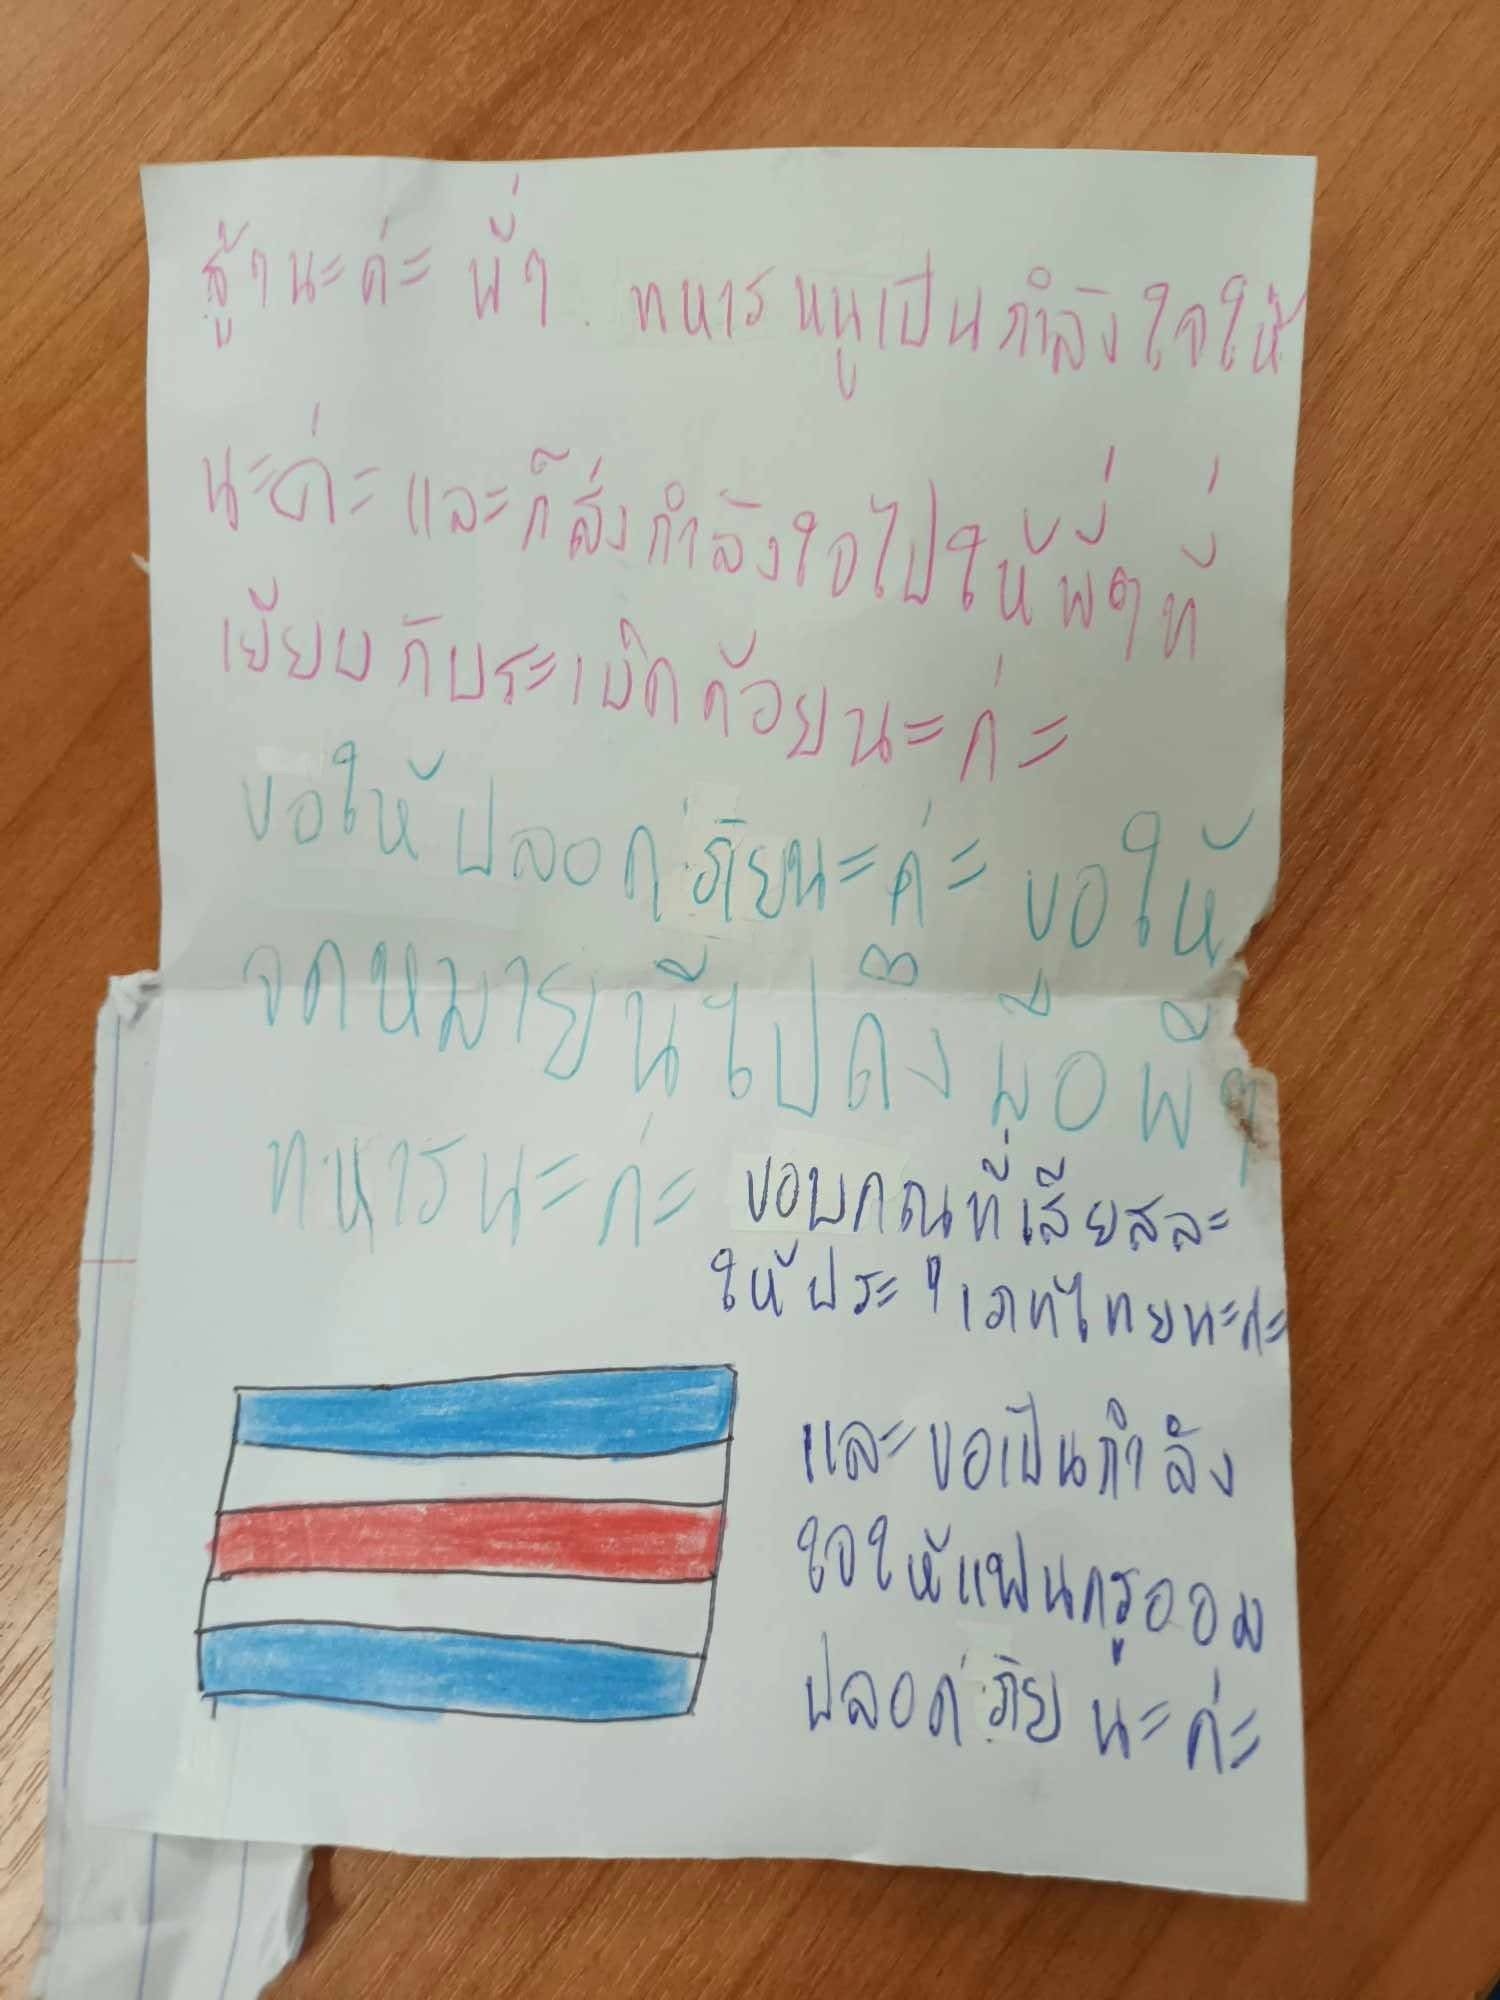 สู้ๆนะค่ะ พี่ๆ ทหาร หนูเป็นกำลังใจให้
นะค่ะ และก็ส่งกำลังใจไปให้พี่ๆที่
เยียบกับระเบิดด้วยนะค่ะ
ขอให้ปลอดภัยนะค่ะ ขอให้
จดหมายนี้ไปถึงมือพี่ๆ
ทหารนะค่ะ ขอบคุณที่เสียสละ
ให้ประเทศไทยนะค่ะ
และขอเป็นกำลัง
ใจให้แฟนครูออม
ปลอดภัยนะค่ะ